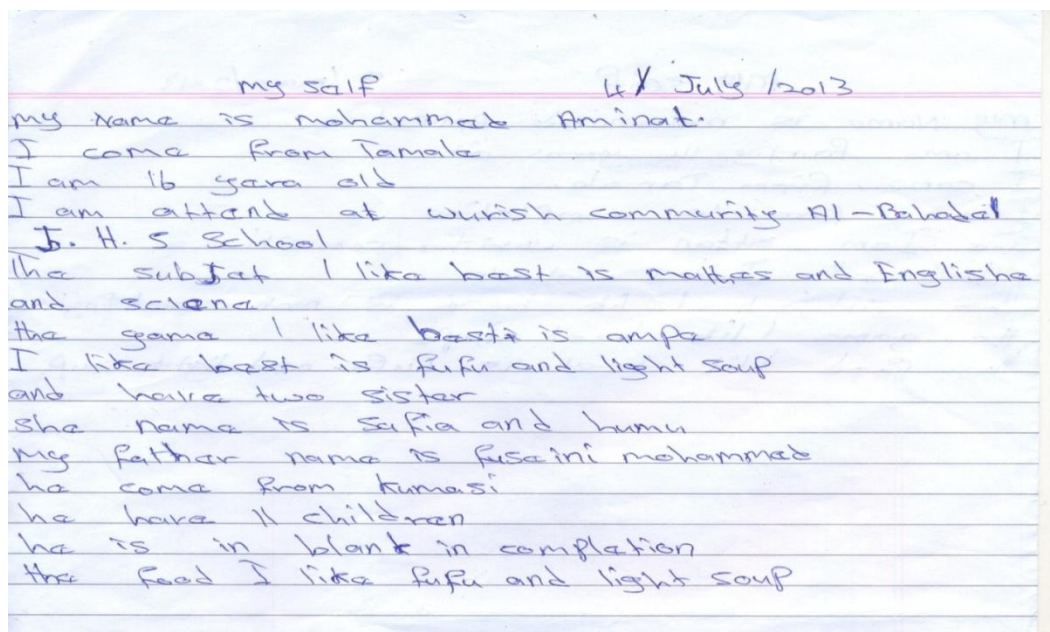 my self 4/ July /2013
my name is mohammed Aminat.
I come from Tamale
I am 16 yera old
I am attend at wurish community Al-Bahadal
J. H. S School
The subJet I like best is mattes and Englishe
and sciene
the game I like best is ampe
I like best is fufu and light soup
and have two sister
she name is Safia and humu
my father name is fuseini mohammed
he come from kumasi
he have 11 children
he is in blank in completion
the food I like fufu and light soup